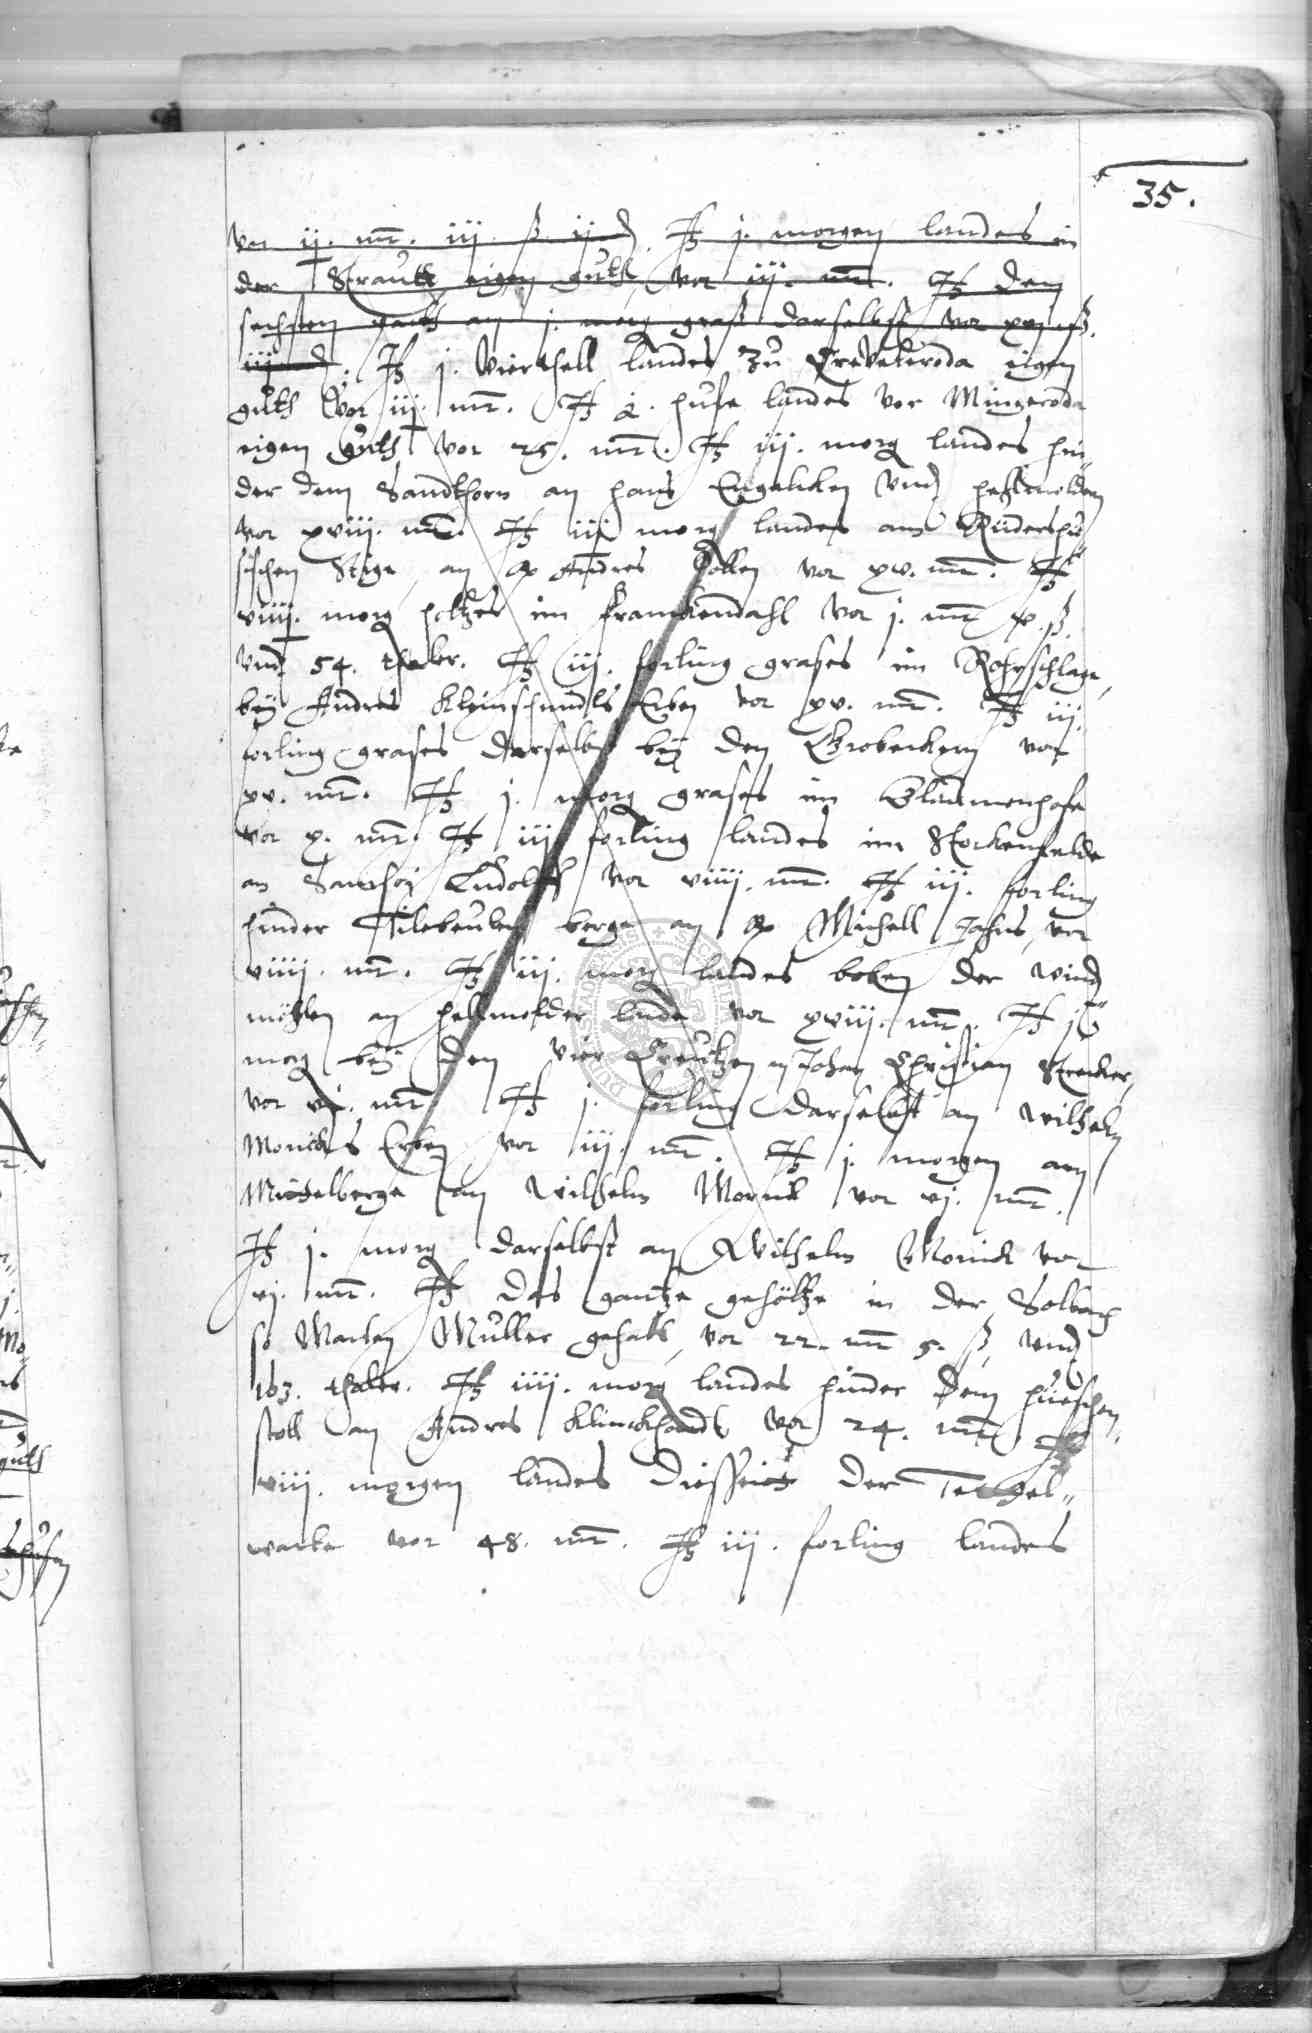 35.
vor ij. mr. iij. ß. ij d. It j. morgen landes in
der Strautt eigen guth, vor iij. mr. It den
sechsten an j. morg graß darselbst vor xvj ß.
iij d. It j. Vierthell landes zu Creveteroda eigen
guth vor iij. mr. It hufe landes vor Mingeroda
eigen guth vor 25. mr. It iij. morg landes hin
der dem Sandthorn an hans Engelcken vnd
vor xviij. mr. It iij morg landes am Rüdershu
sischen Stige an Andres Bollen vor xv. mr. It
viiij. morg holtzes im Franckendahl vor j. mr. ß.
vnd 54. thaler. It iij. forling grases im Rohrschlage,
bey Andres Kleinschmidts Erben vor xv. mr. It iij.
forling grases darselbst bey den Grobeckern vor
xv. mr. It j. morg grases im Blaumenhofe
vor x. mr. It iij forling landes im Stockenfelde
an Ludolff vor viiij. mr. It iij. forling
hinder berge an Michell Jahns, vor
viiij. mr. It iij. morg landes boben der wind
möhlen an vor xviij. mr. It
morg bey den vier Creutzen an Johan Christian Strecker,
vor vj. mr. It j. forling darselbst an Wilhelm
Monicks Erben vor iij. mr. It j. morgen am
Mittelberge an Wilhelm Monick vor vj. mr.
It j. morg darselbst an Wilhelm Monick vor
vj. mr. It das gantze gehöltze in der Solbach
so Marten Muller gehabt, vor 22. mr 5. ß, vnd
163. thaler. It iiij. morg landes hinder dem
stoll an Andres Klinckhardt vor 24. mr. It
viij. morgen landes diesseit der
warte vor 48. mr. It iij. forling landes